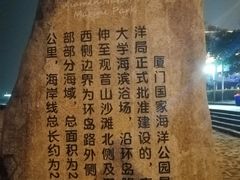 Park
厦门国家海洋公园
洋局正式批准建设的，
大学海滨浴场，沿环岛
伸至观音山沙滩北侧及
西侧边界为环岛路外侧
部部分海域，总面积为2
公里，海岸线总长约为2